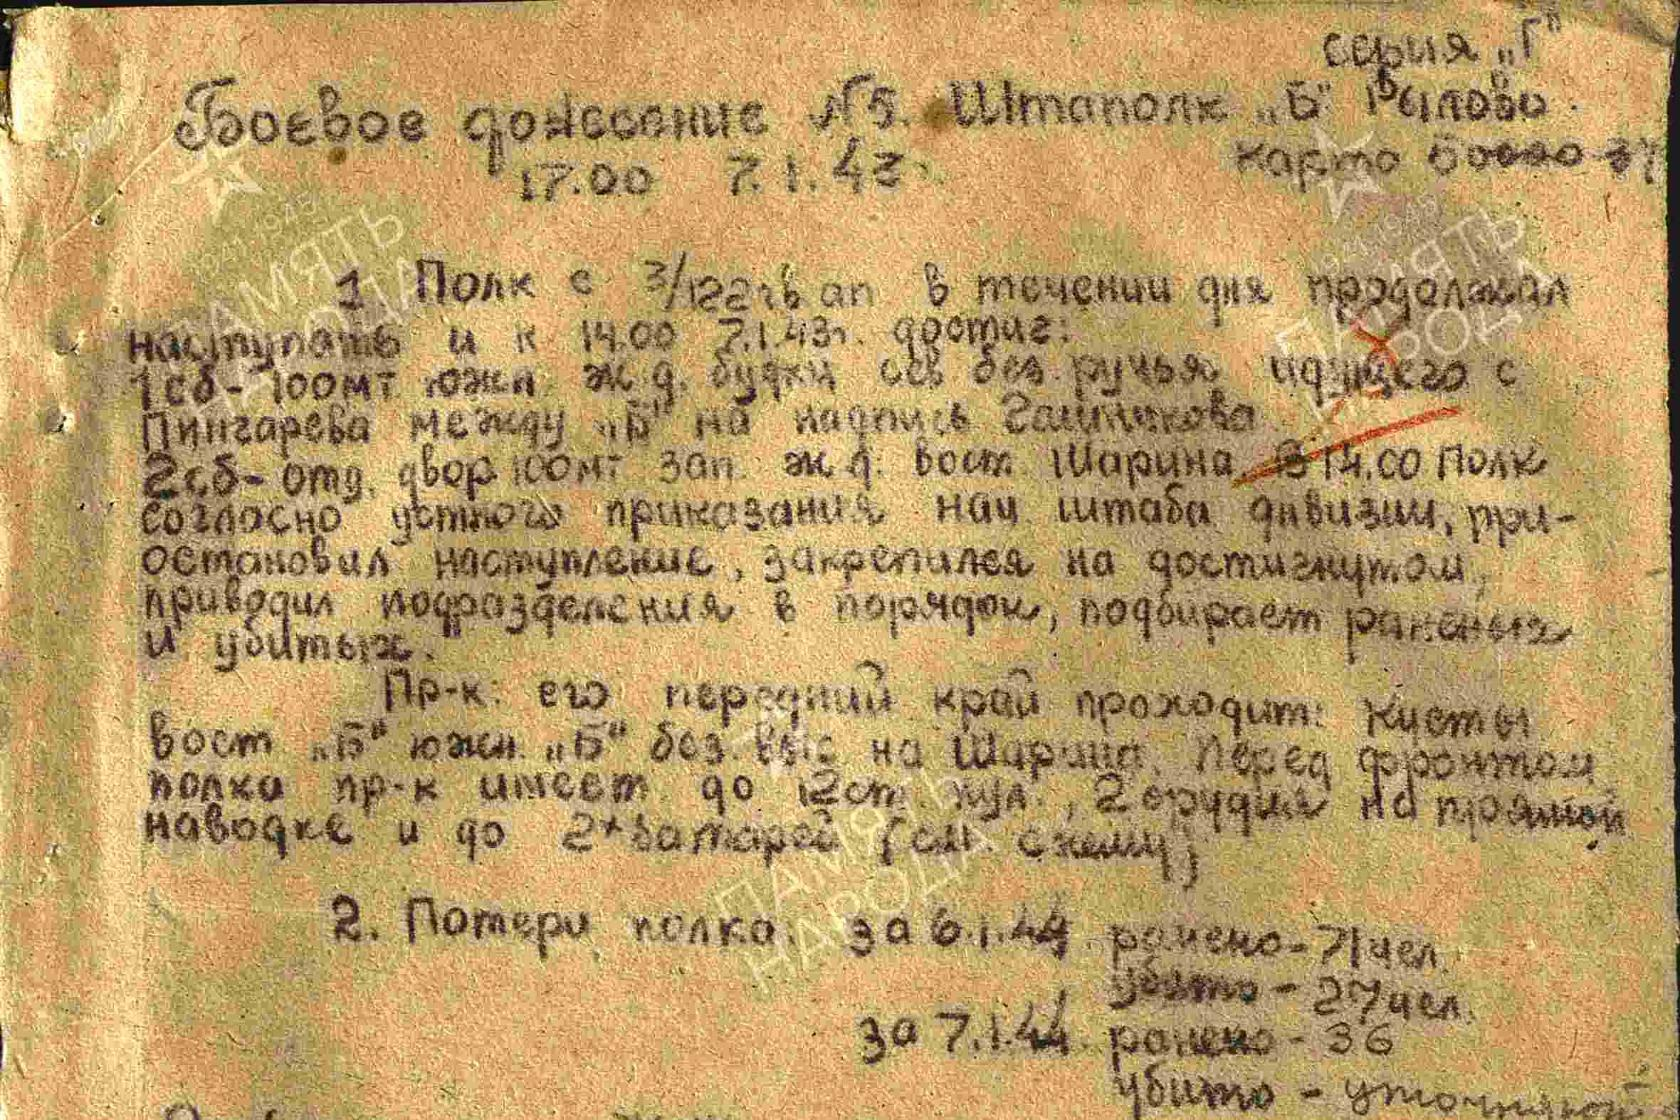 серия „Г“
Боевое донесение №5. Штаполк „Б“ Рылово.
17.00 7.1.43г. карта 50000-37
1. Полк с 3/122 гв ап в течении дня продолжал
наступать и к 14.00 7.1.43г. достиг:
1сб- 100мт южн. ж.д. будки сев без. ручья идущего с
Пингарева между „Б“ на надпись
2сб- отд. двор 100мт зап. ж.д. вост Шарина. В 14.00 Полк
согласно устного приказания нач штаба дивизии, при-
остановил наступление, закрепился на достигнутом,
приводил подразделения в порядок, подбирает раненых
и убитых.
Пр-к: его передний край проходит: кусты
вост „Б“ южн. „Б“ без. выс на Шарина. Перед фронтом
полка пр-к имеет до 12 ст. пул., 2 орудия на прямой
наводке и до 2х батарей (см. схему)
2. Потери полка. за 6.1.44 ранено-71чел.
убито - 27чел.
за 7.1.44. ранено - 36
убито -
ПАМЯТЬ НАРОДА
1941-1945
ПАМЯТЬ НАРОДА
1941-1945
ПАМЯТЬ НАРОДА
ПАМЯТЬ НАРОДА